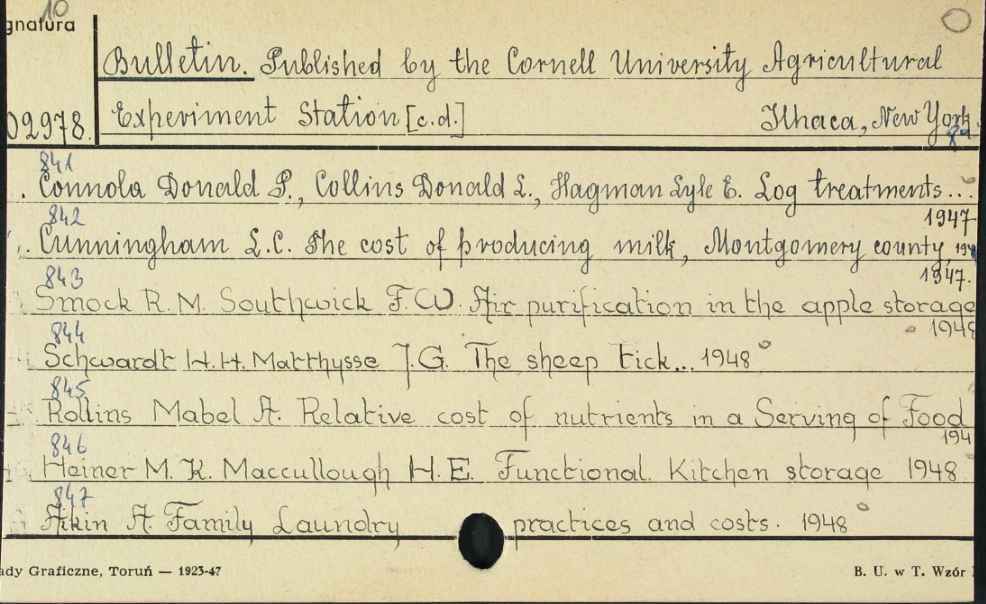 10
gnatura
Bulletin. Published by the Cornell University Agricultural
02978. Experiment Station [c.d.] Ithaca, New York
841
Connola Donald P., Collins Donald L., Hagman Lyle E. Log treatments...
842 1947
Cunningham L.C. The cost of producing milk, Montgomery county,
843 1947.
Smock R. M. Southwick F. W. Air purification in the apple storage
844 1948
Schwardt H. H. Matthysse J. G. The sheep tick... 1948
845
Rollins Mabel A. Relative cost of nutrients in a Serving of Food
846 194
Heiner M. K. Maccullough H. E. Functional Kitchen storage 1948.
847
Aikin A. Family Laundry practices and costs. 1948
ady Graficzne, Toruń — 1923-47 B. U. w T. Wzór